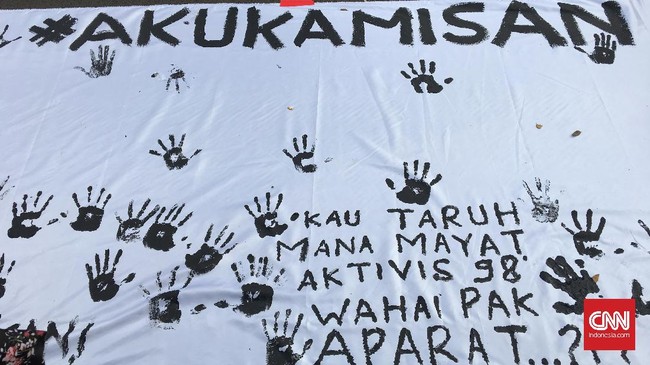 #AKUKAMISAN
KAU TARUH
MANA MAYAT
AKTIVIS 98
WAHAI PAK
APARAT...?!
CNN
Indonesia.com